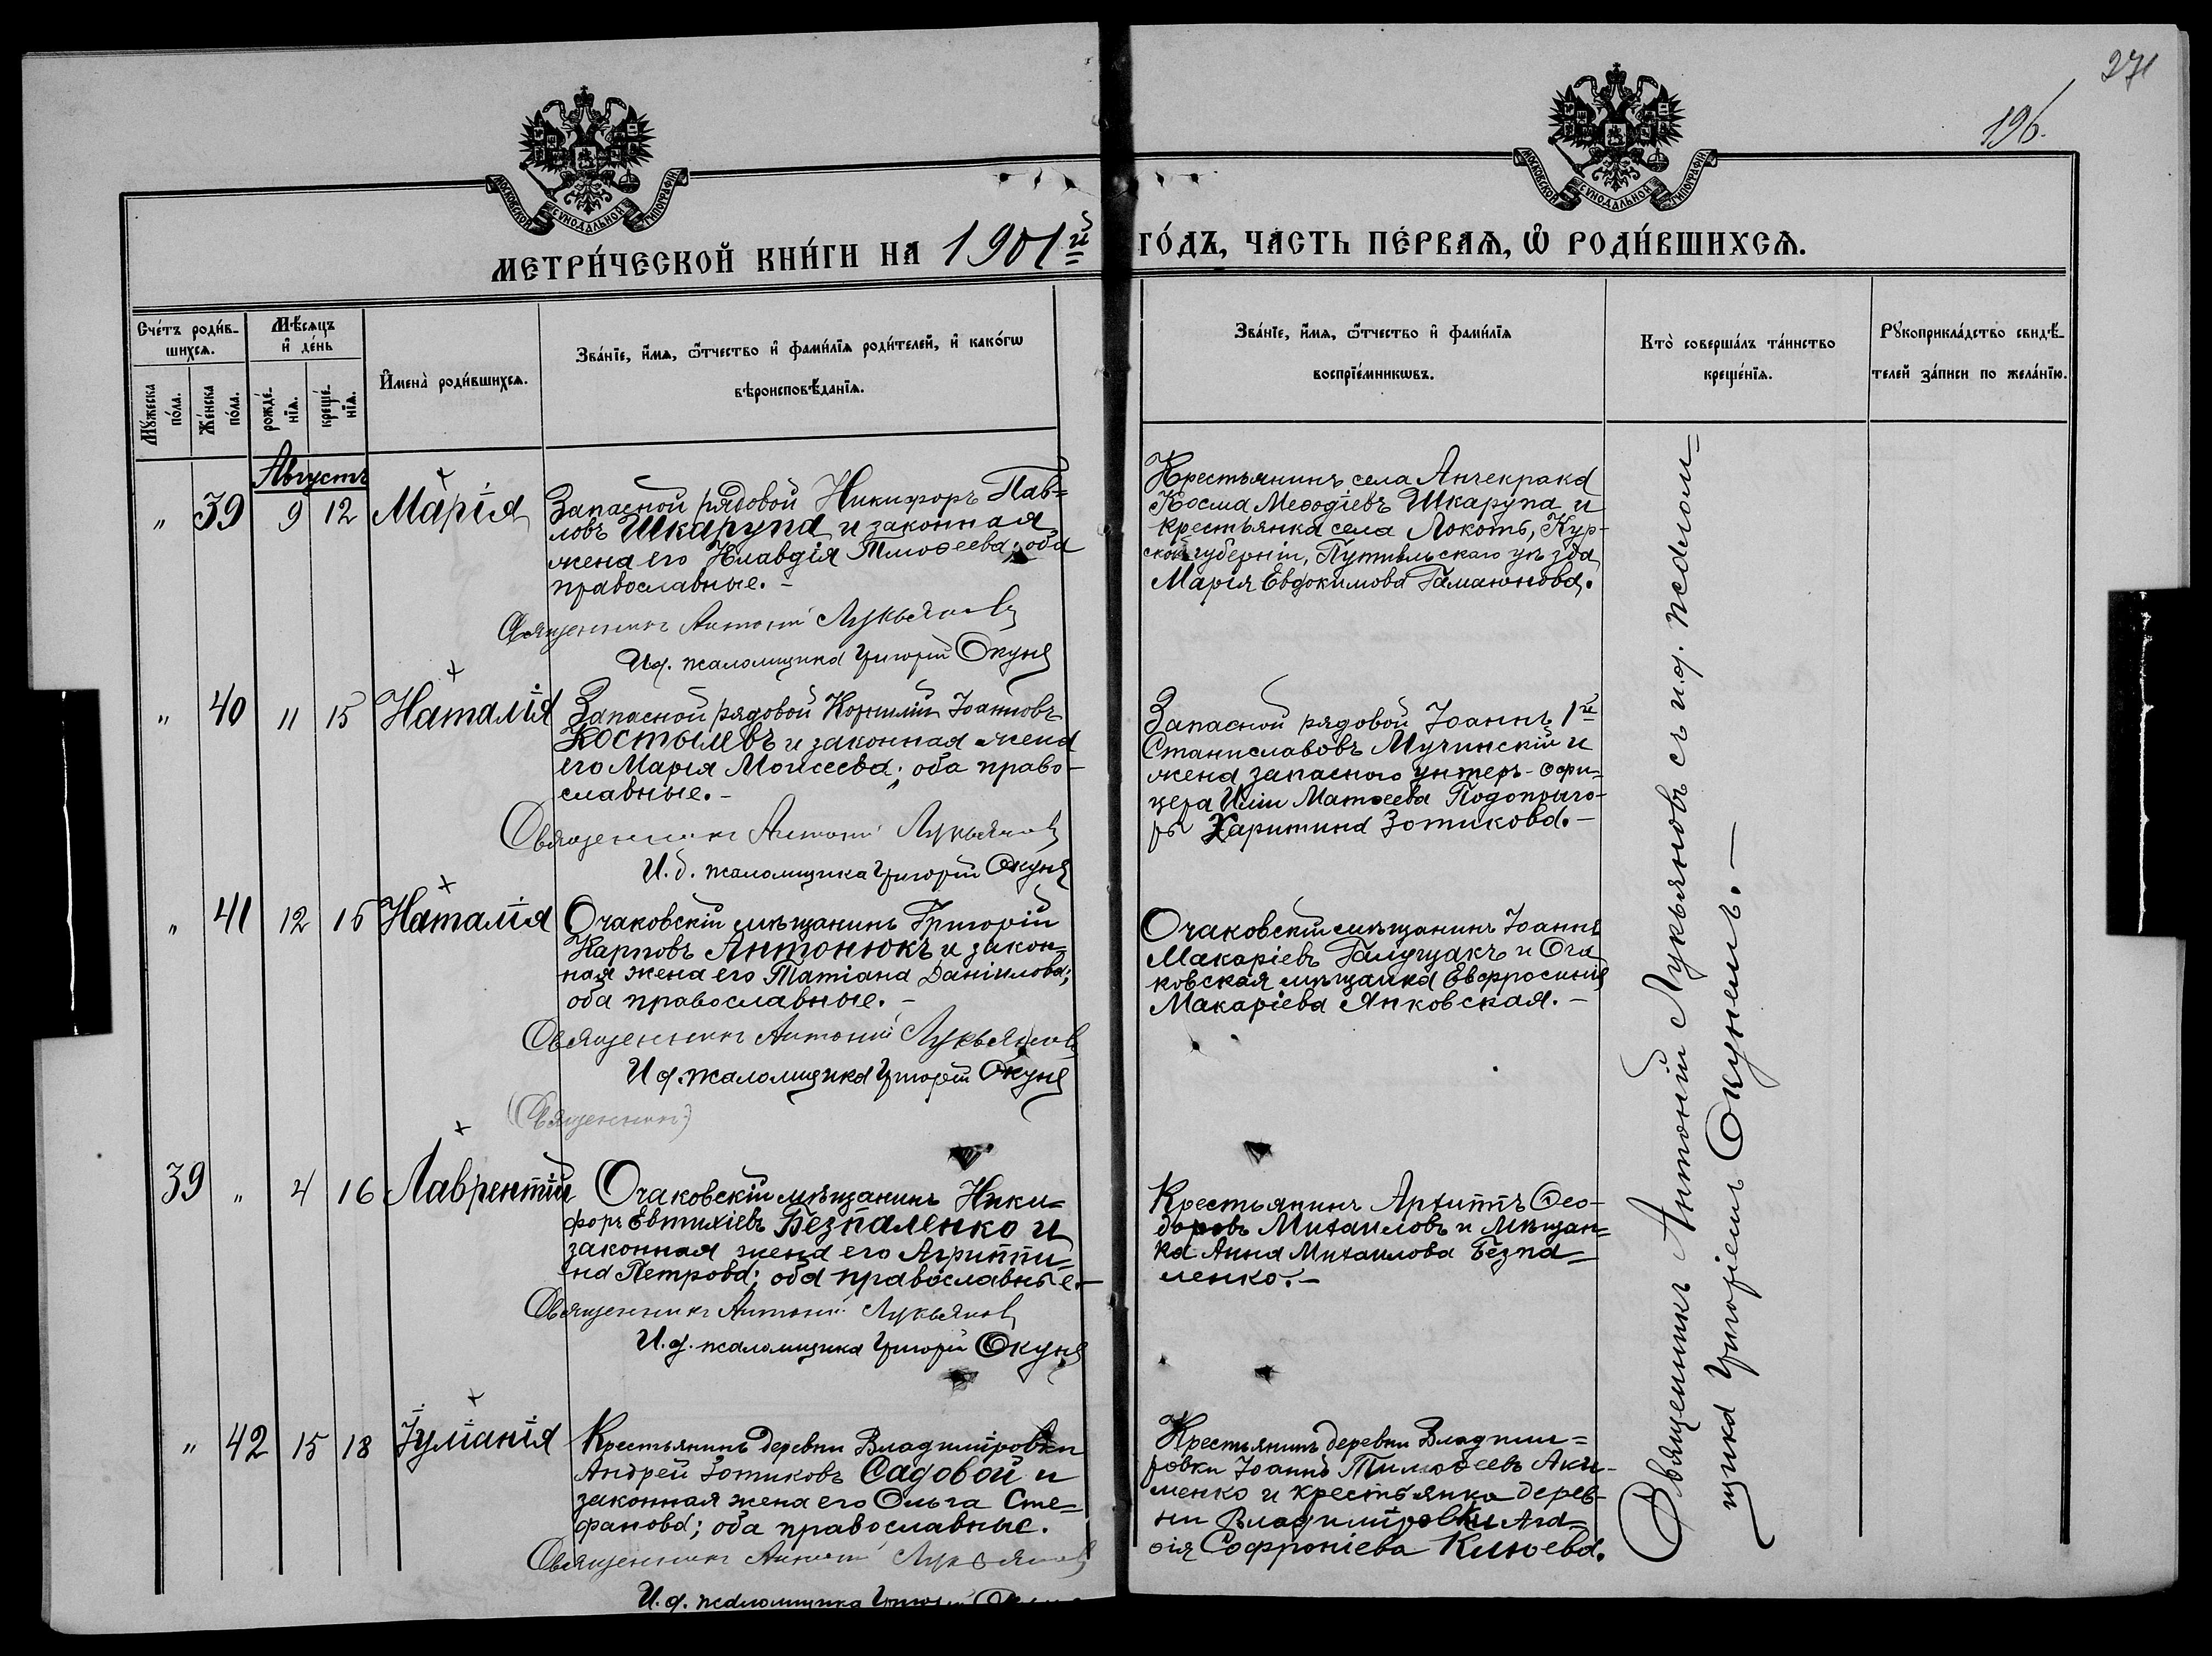 271
196.
МОСКОВСКОЙ СѴНОДАЛЬНОЙ ТИПОГРАФІИ
МОСКОВСКОЙ СѴНОДАЛЬНОЙ ТИПОГРАФІИ
МЕТРИ́ЧЕСКОЙ КНИ́ГИ НА 1901й ГО́ДЪ, ЧА́СТЬ ПЕ́РВАѦ, Ѽ РОДИ́ВШИХСѦ.
Сче́тъ роди́в-
шихсѧ.
Мꙋ́жеска по́ла.
Же́нска по́ла.
Мѣ́сѧцъ и҆ де́нь
рожде́-нїѧ.
креще́-нїѧ.
И҆мена̀ роди́вшихсѧ.
Зва́нїе, и҆́мѧ, ѻ҆́тчество и҆ фами́лїѧ роди́телей, и҆ како́гѡ
вѣроисповѣ́данїѧ.
Зва́нїе, и҆́мѧ, ѻ҆́тчество и҆ фами́лїѧ
воспрїе́мникѡвъ.
Кто̀ соверша́лъ та́инство
креще́нїѧ.
Рꙋкоприкла́дство свидѣ́-
телей за́писи по жела́нїю.
Августъ
" 39 9 12 Марія
Запасной рядовой Никифоръ Пав=
ловъ Шкарупа и законная
жена его Клавдія Тимоѳеева; оба
православные. -
Священникъ Антоній Лукьяновъ
И.д. псаломщика Григорій Окунь
Крестьянинъ села Анчекрака
Косма Меѳодіевъ Шкарупа и
крестьянка села Локоть, Кур-
ской губерніи, Путивльскаго уѣзда
Марія Евдокимова Гамаюнова.
" 40 11 15 Наталія
Запасной рядовой Корнилій Іоанновъ
Костылевъ и законная жена
его Марія Моисеева; оба право-
славные. -
Священникъ Антоній Лукьяновъ
И.д. псаломщика Григорій Окунь
Запасной рядовой Іоаннъ 1й
Станиславовъ Мучинскій и
жена запаснаго унтеръ-офи=
цера Иліи Матѳеева Подоприго-
ры Харитина Зотикова. -
" 41 12 15 Наталія
Очаковскій мѣщанинъ Григорій
Карповъ Антонюкъ и закон=
ная жена его Татіана Даніилова;
оба православные. -
Священникъ Антоній Лукьяновъ
И.д. псаломщика Григорій Окунь
(Священникъ)
Очаковскій мѣщанинъ Іоаннъ
Макаріевъ Галущакъ и Оча
ковская мѣщанка Евфросинія
Макаріева Янковская. -
39 " 4 16 Лаврентій
Очаковскій мѣщанинъ Ники=
форъ Евтихіевъ Безпаленко и
законная жена его Агриппи=
на Петрова; оба православные. -
Священникъ Антоній Лукьяновъ
И.д. псаломщика Григорій Окунь
Крестьянинъ Архиппъ Ѳео-
доровъ Михаиловъ и мѣщан=
ка Анна Михаилова Безпа=
ленко. -
" 42 15 18 Іуліанія
Крестьянинъ деревни Владиміровки
Андрей Зотиковъ Садовой и
законная жена его Ольга Сте=
фанова; оба православные.
Священникъ Антоній Лукьяновъ
И.д. псаломщика Григорій Окунь
Крестьянинъ деревни Владими=
ровки Іоаннъ Тимоѳеевъ Аки-
менко и крестьянка дерев-
ни Владиміровки Ага=
ѳія Софроніева Клюева.
Священникъ Антоній Лукьяновъ съ и.д. псалом=
щика Григоріемъ Окунемъ. -